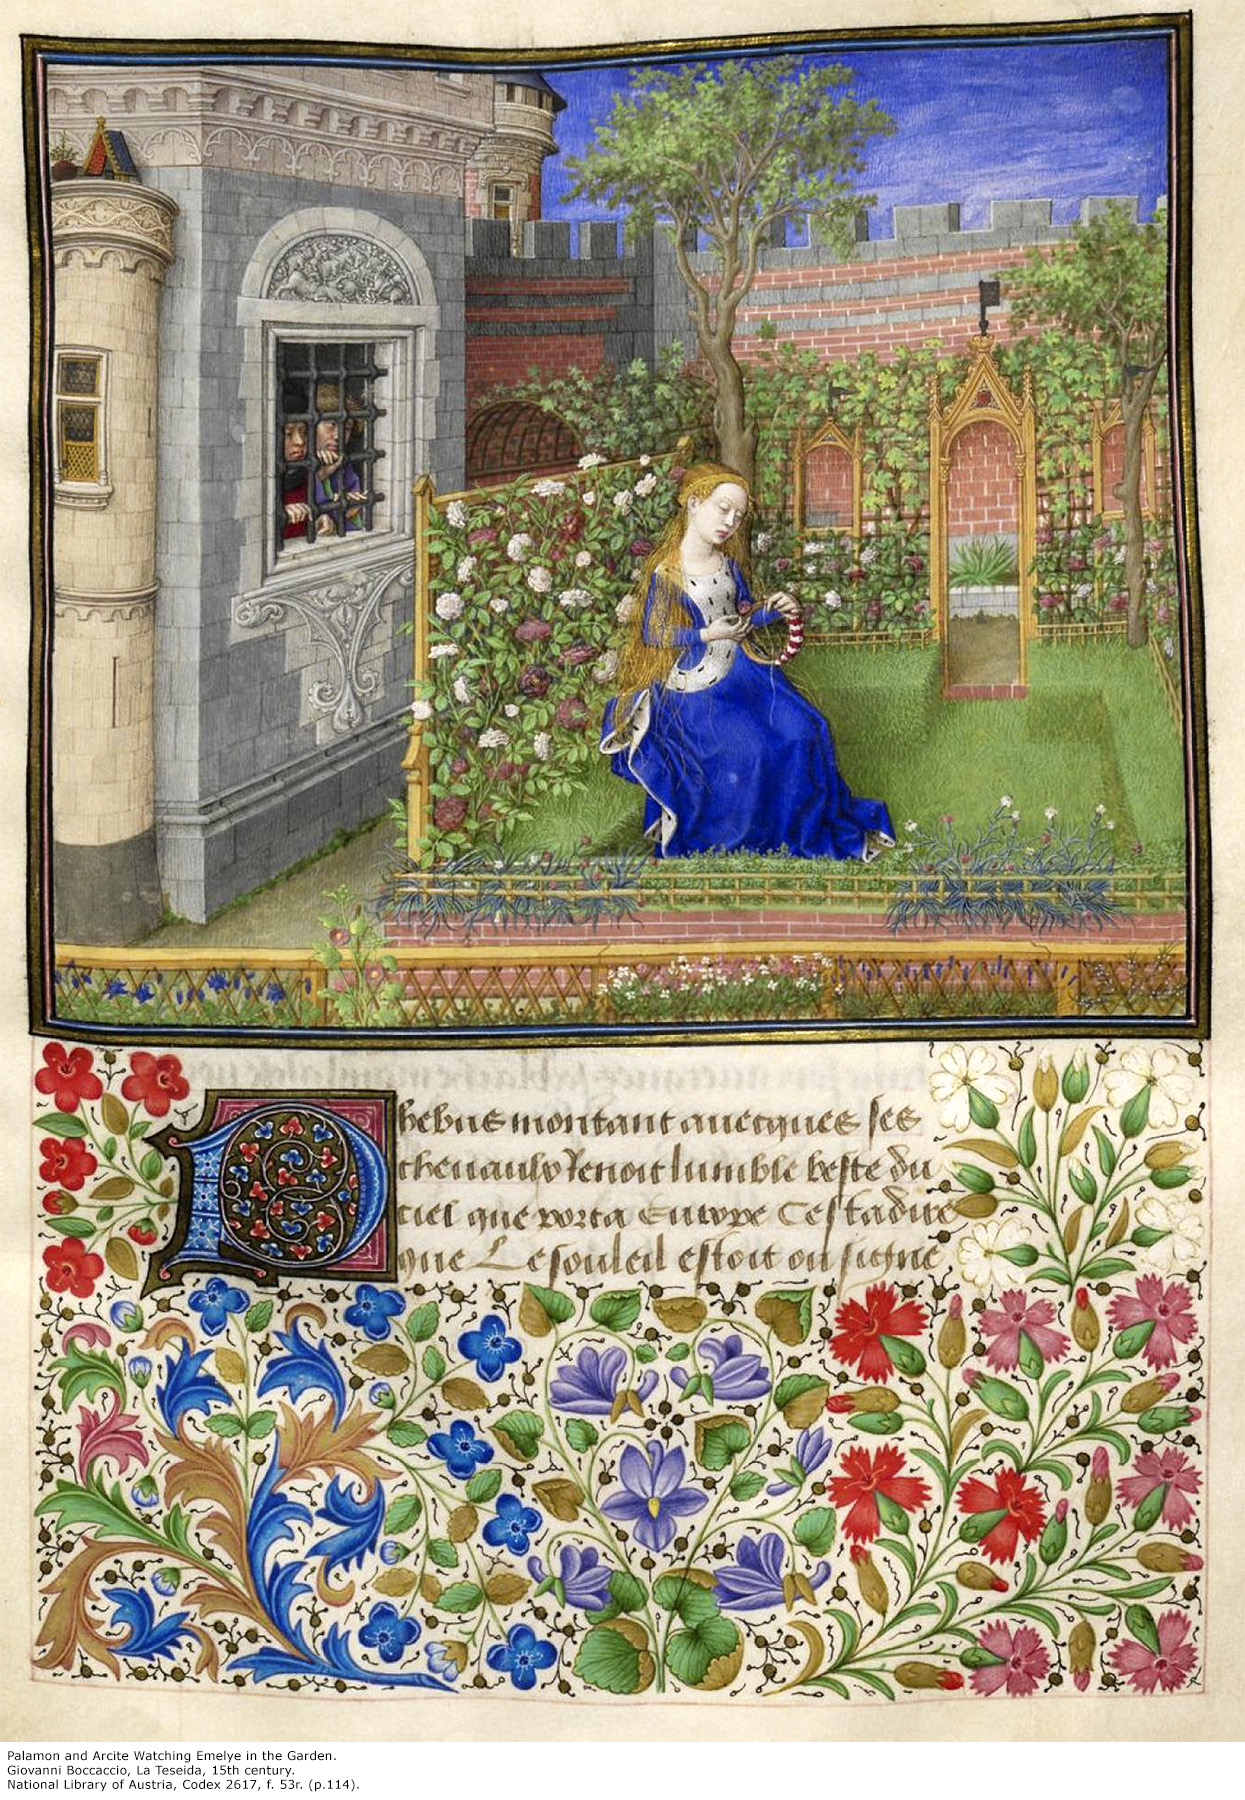 Phebus montant auecques ses
cheuaulx tenoit lumble beste du
ciel que porta Europe Cestadire
que Le souleil estoit ou signe
Palamon and Arcite Watching Emelye in the Garden.
Giovanni Boccaccio, La Teseida, 15th century.
National Library of Austria, Codex 2617, f. 53r. (p.114).